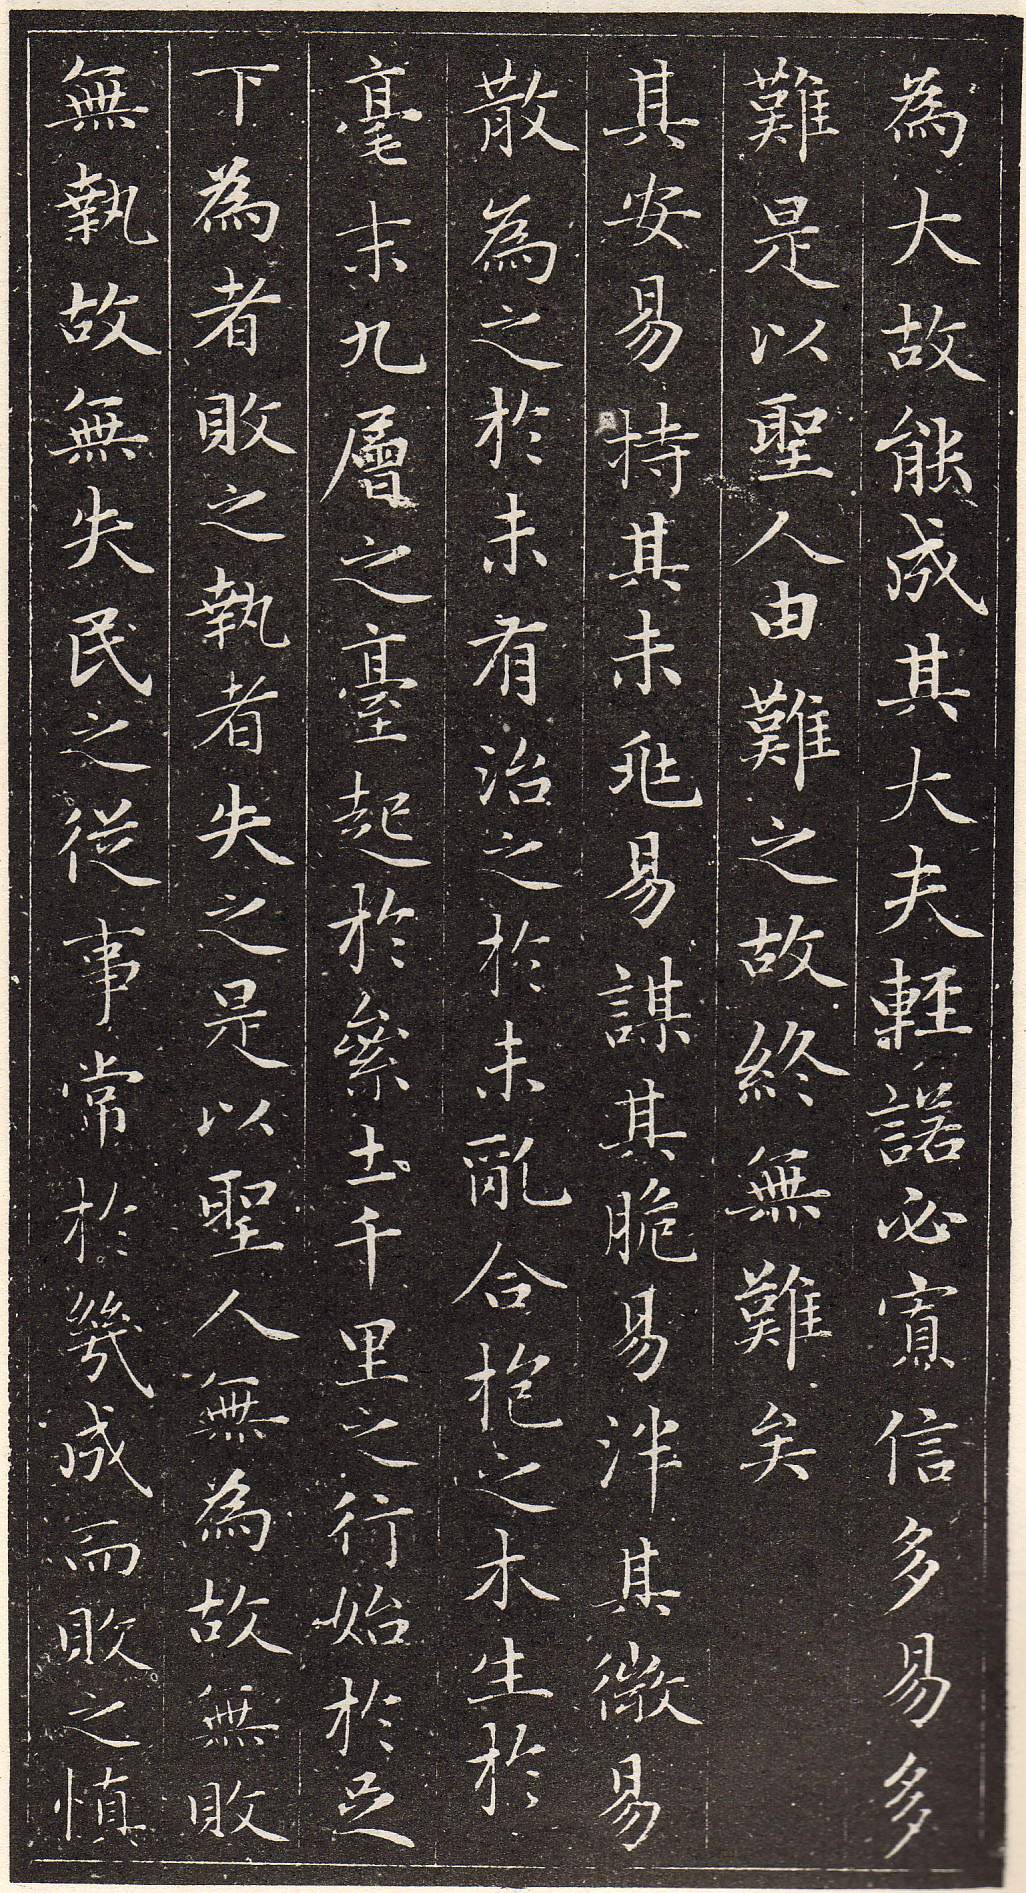 為大故能成其大夫輕諾必寡信多易多
難是以聖人由難之故終無難矣
其安易持其未兆易謀其脆易泮其微易
散為之於未有治之於未亂合抱之木生於
毫末九層之臺起於絫土千里之行始於足
下為者敗之執者失之是以聖人無為故無敗
無執故無失民之從事常於幾成而敗之慎